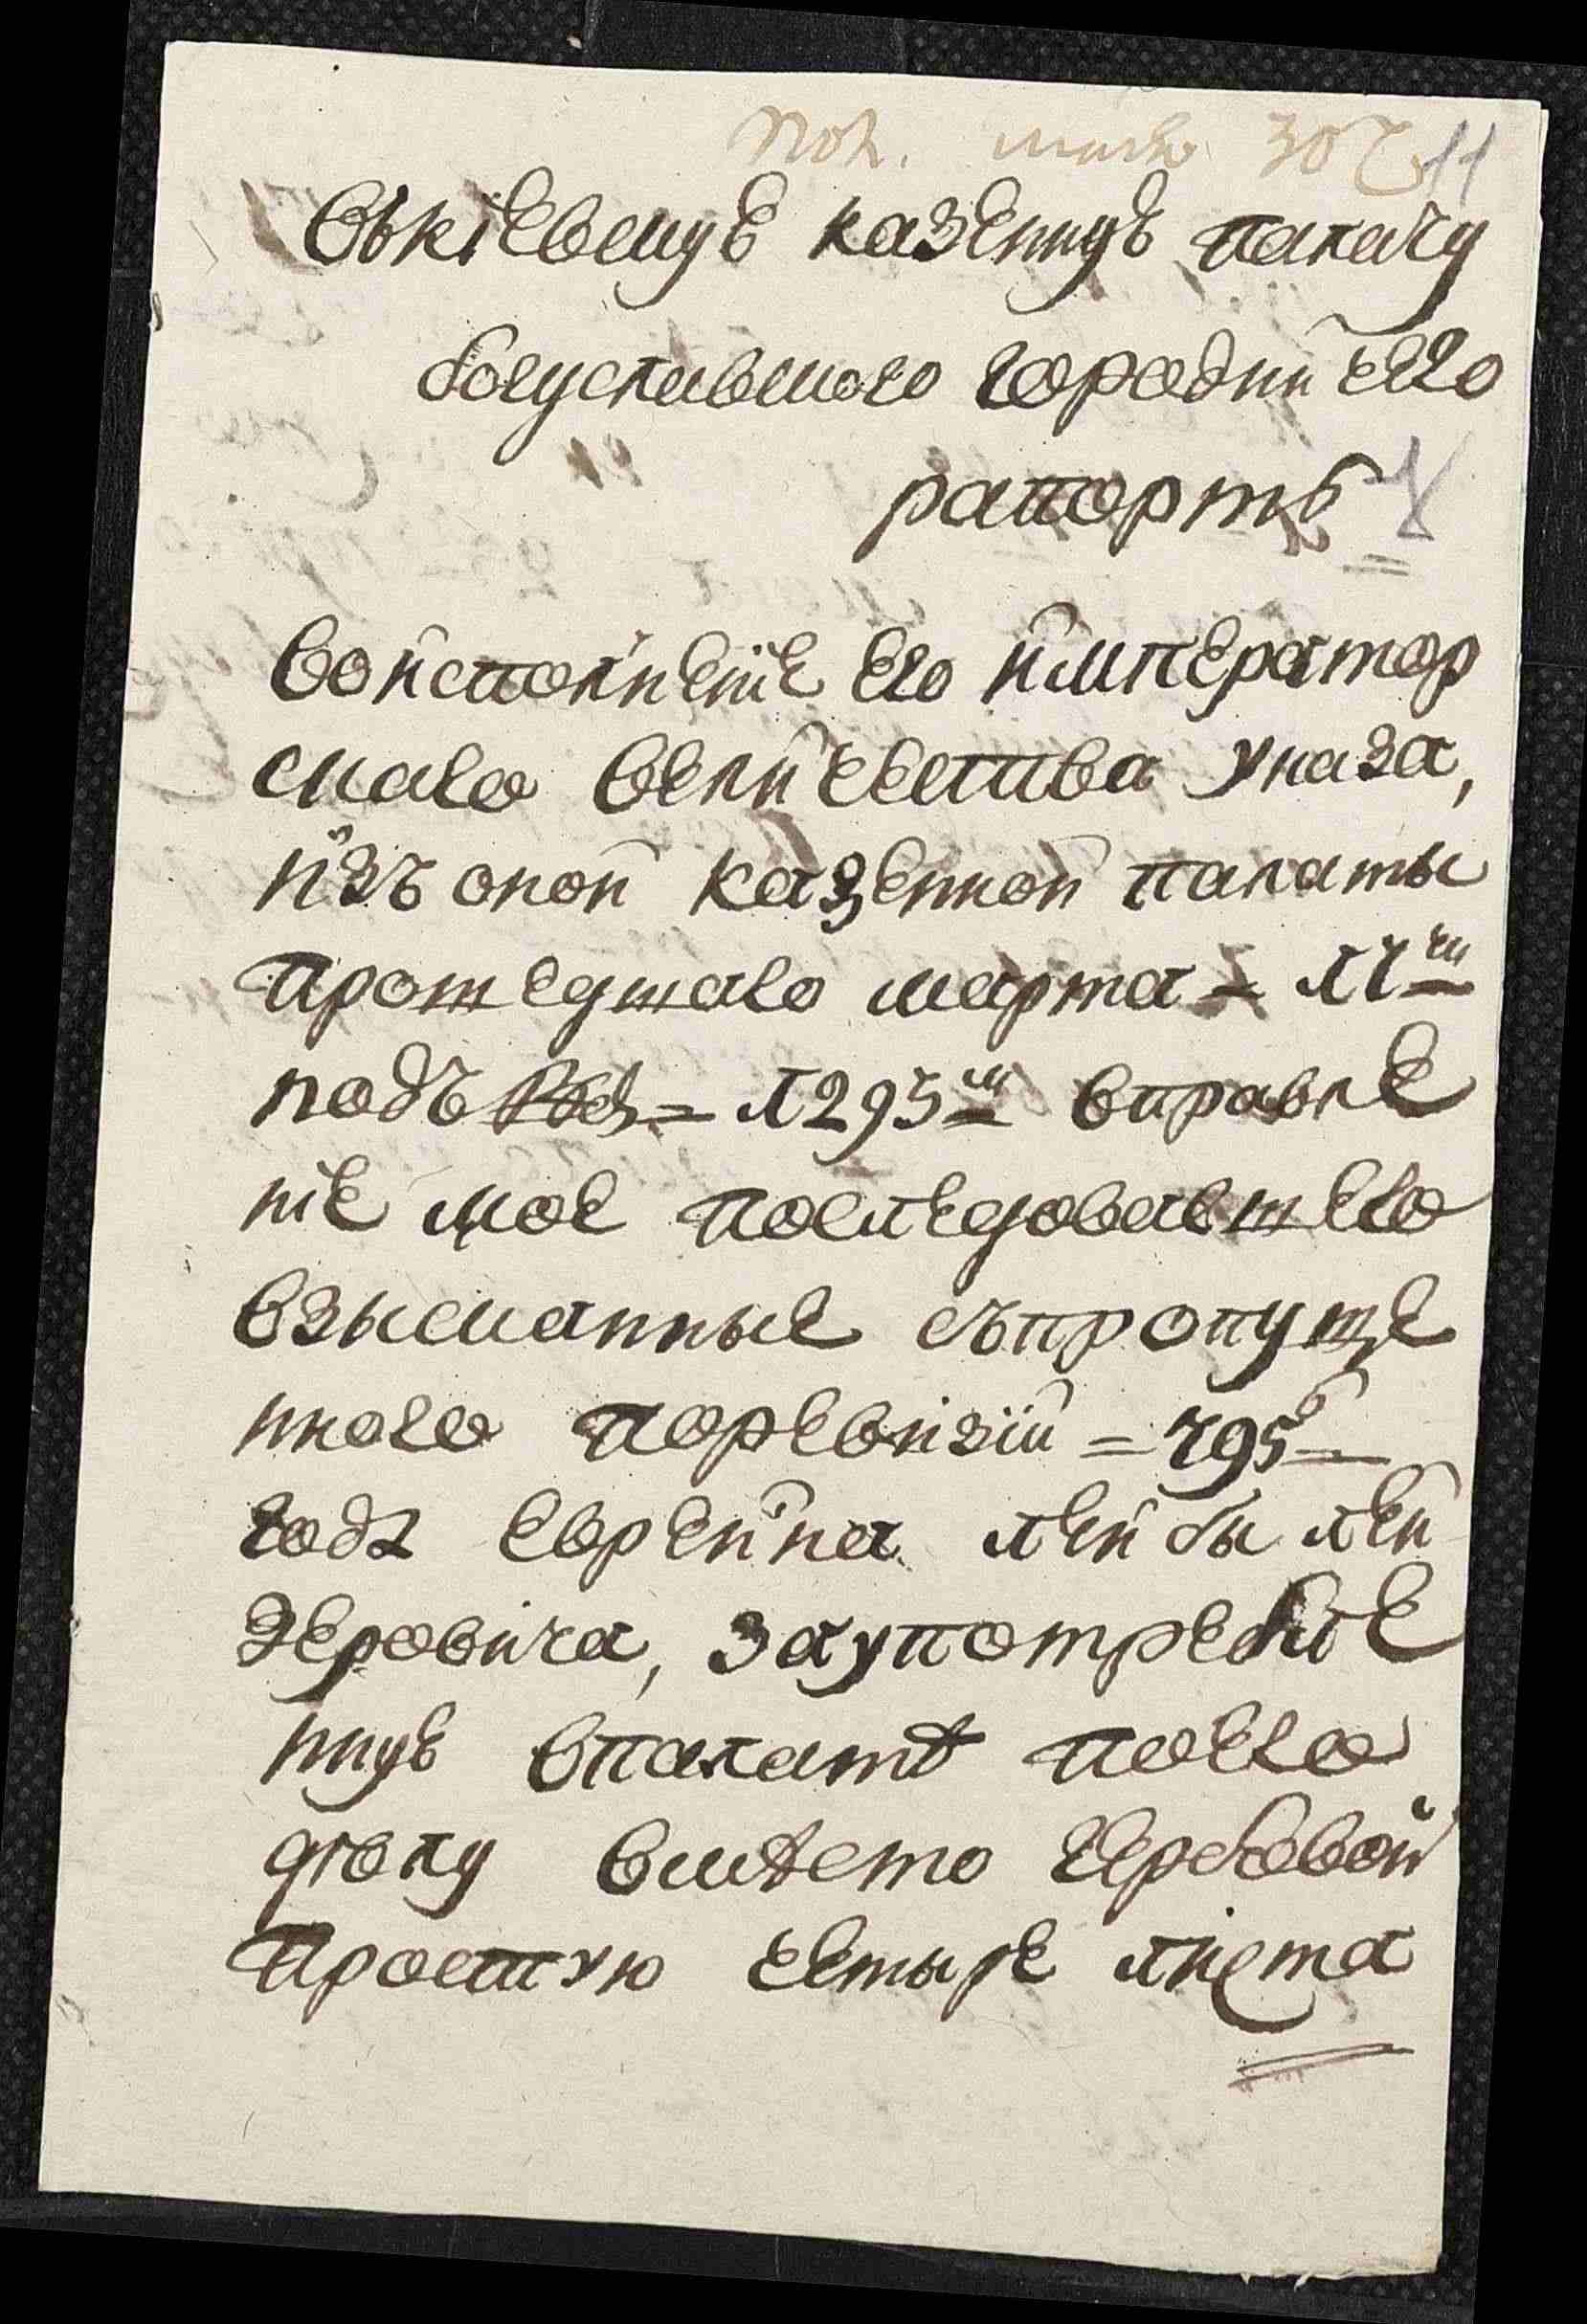 Въкіевскую казенную палату
богуславского городничего
рапортъ
Воисполнение его император
скаго величества указа,
изъ оной казенной палаты
протедшаго марта = 11 го
подъ = 1295 м вправле
ніе мое последовавшего
взысканные съпропуще
ннаго поревизіи = 795 г
года евреина лейбы лей
зеровича, заупотребле
нную впалатѣ поего
дѣлу вмѣсто гербовой
простую четыре листа